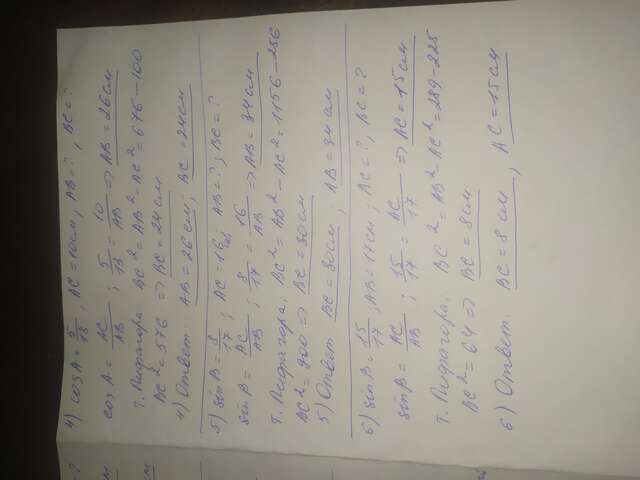 4) cos A = 5/13 ; AC = 10см, AB = ? , BC = ?
cos A = AC/AB ; 5/13 = 10/AB => AB = 26см
т. Пифагора BC² = AB² - AC² = 676 - 100
BC² = 576 => BC = 24см
4) Ответ. AB = 26см; BC = 24см
5) sin B = 8/17 ; AC = 16см, AB = ? ; BC = ?
sin B = AC/AB ; 8/17 = 16/AB => AB = 34см
т. Пифагора. BC² = AB² - AC² = 1156 - 256
BC² = 900 => BC = 30см
5) Ответ BC = 30см, AB = 34см
6) sin B = 15/17 ; AB = 17см ; AC = ? , BC = ?
sin B = AC/AB ; 15/17 = AC/17 => AC = 15см
т. Пифагора. BC² = AB² - AC² = 289 - 225
BC² = 64 => BC = 8см
6) Ответ. BC = 8см, AC = 15см